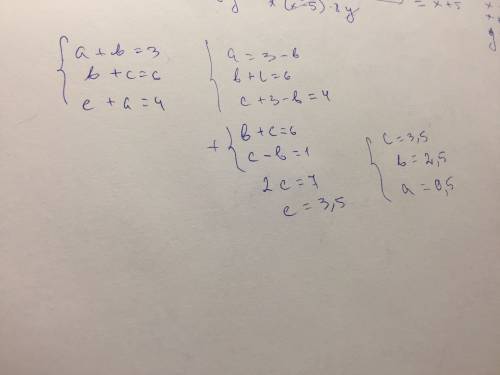 x(x-5)·2y
= x+5
a + b = 3
b + c = 6
c + a = 4
a = 3 - b
b + c = 6
c + 3 - b = 4
+ b + c = 6
c - b = 1
2c = 7
c = 3,5
c = 3,5
b = 2,5
a = 0,5